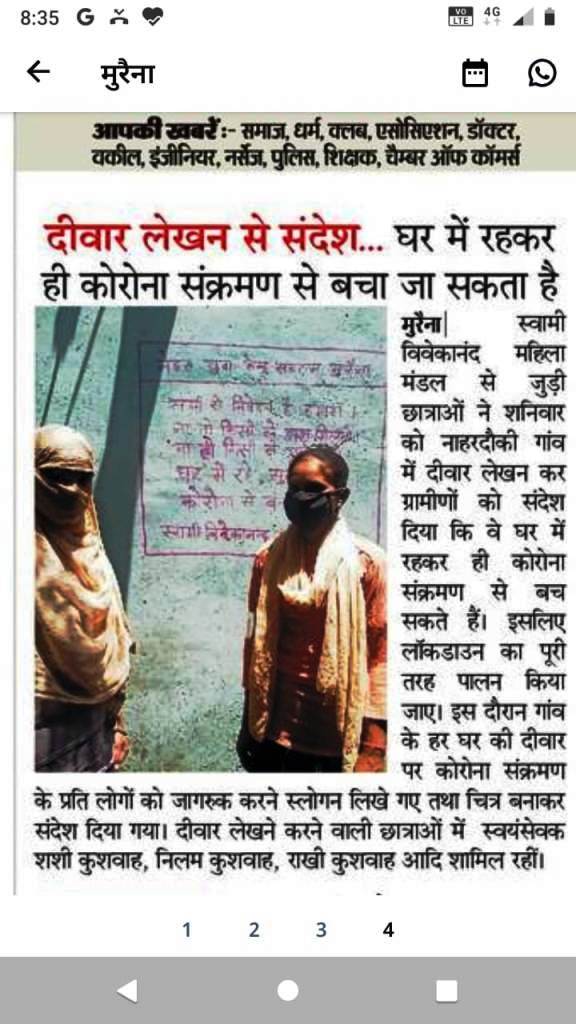 8:35
VO LTE 4G
मुरैना
आपकी खबरें :- समाज, धर्म, क्लब, एसोसिएशन, डॉक्टर,
वकील, इंजीनियर, नर्सेज, पुलिस, शिक्षक, चैम्बर ऑफ कॉमर्स
दीवार लेखन से संदेश... घर में रहकर
ही कोरोना संक्रमण से बचा जा सकता है
मुरैना| स्वामी
विवेकानंद महिला
मंडल से जुड़ी
छात्राओं ने शनिवार
को नाहरदौकी गांव
में दीवार लेखन कर
ग्रामीणों को संदेश
दिया कि वे घर में
रहकर ही कोरोना
संक्रमण से बच
सकते हैं। इसलिए
लॉकडाउन का पूरी
तरह पालन किया
जाए। इस दौरान गांव
के हर घर की दीवार
पर कोरोना संक्रमण
के प्रति लोगों को जागरुक करने स्लोगन लिखे गए तथा चित्र बनाकर
संदेश दिया गया। दीवार लेखने करने वाली छात्राओं में स्वयंसेवक
शशी कुशवाह, निलम कुशवाह, राखी कुशवाह आदि शामिल रहीं।
मुरैना
घर में रहे
कोरोना से
स्वामी विवेकानन्द
1 2 3 4